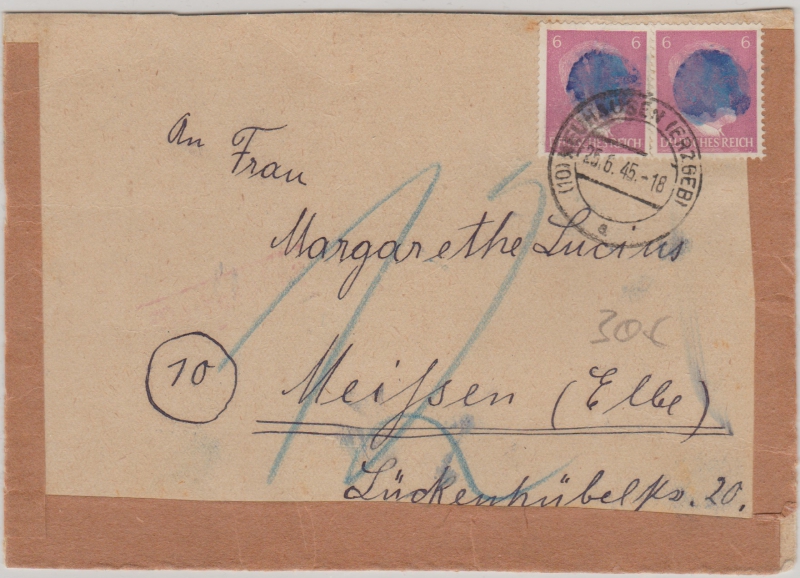 6 6 6 6
DEUTSCHES REICH DEUTSCHES REICH
(10) NEUHAUSEN (ERZGEB)
25.6.45.-18
a
An Frau
Margarethe Lucius
305
10
Meißen (Elbe)
Lückenhübelstr. 20.